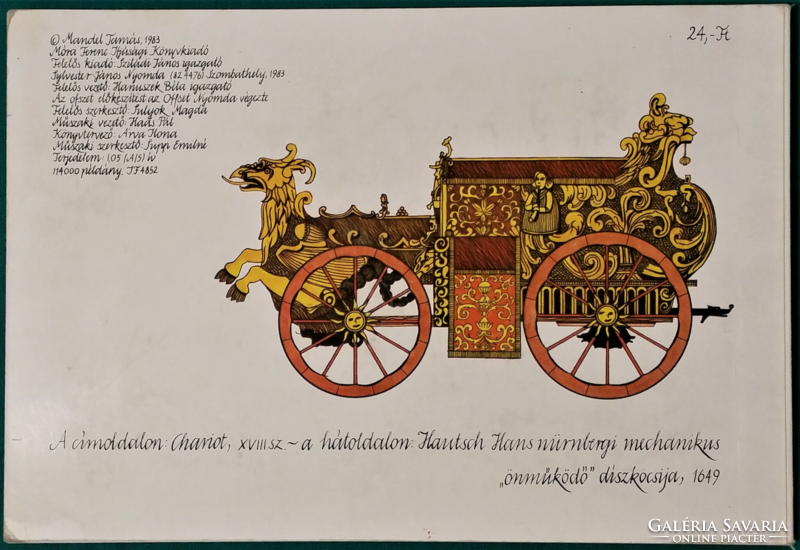 © Mandel Tamás, 1983
Móra Ferenc Ifjúsági Könyvkiadó
Felelős kiadó: Sziládi János igazgató
Sylvester János Nyomda (82.4476) Szombathely, 1983
Felelős vezető: Hanuszek Béla igazgató
Az ofszet előkészítést az Offset Nyomda végezte
Felelős szerkesztő: Sulyok Magda
Műszaki vezető: Haás Pál
Könyvtervező: Árva Ilona
Műszaki szerkesztő: Supp Emilné
Terjedelem: (05 (A/5) ív
114000 példány. IF 4852
24,-Ft
A címoldalon: Chariot, XVIII SZ. ~ a hátoldalon: Hautsch Hans nürnbergi mechanikus
„önműködő” díszkocsija, 1649
GALÉRIA SAVARIA
ONLINE PIACTÉR